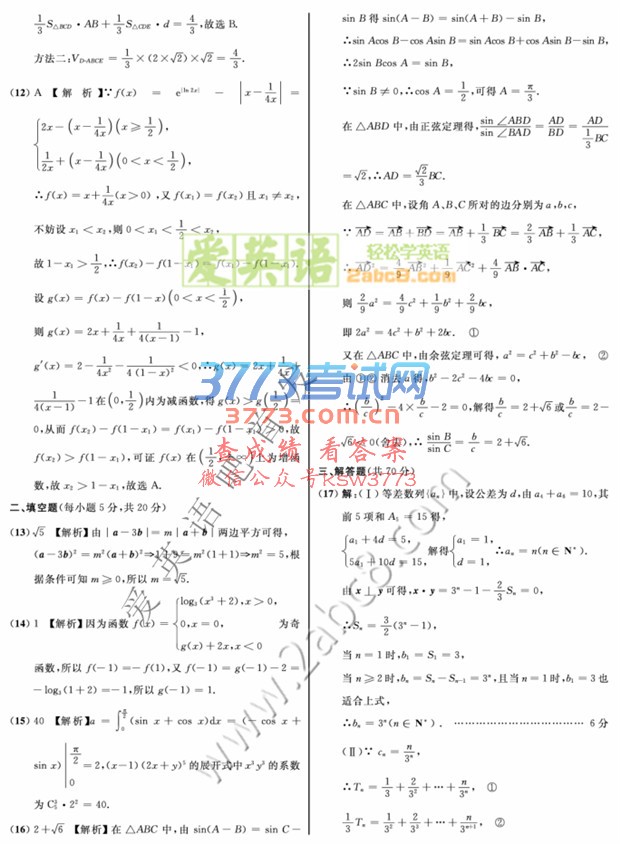 1/3 S△BCD·AB+1/3 S△CDE·d=4/3,故选 B.
方法二:V_{D-ABCE}=1/3×(2×√2)×√2=4/3.
(12) A 【解 析】∵f(x) = e^{|ln 2x|} - |x-1/4x| =
{2x-(x-1/4x)(x≥1/2),
1/2x+(x-1/4x)(0<x<1/2),
∴f(x)=x+1/4x(x>0),又f(x₁)=f(x₂)且x₁≠x₂,
不妨设x₁<x₂,则0<x₁<1/2<x₂,
故1-x₁>1/2,∴f(x₂)-f(1-x₁)=f(x₁)-f(1-x₁),
设g(x)=f(x)-f(1-x)(0<x<1/2),
则g(x)=2x+1/4x+1/4(x-1)-1,
g′(x)=2-1/4x²-1/4(1-x)²<0,∴g(x)=2x+1/4x+
1/4(x-1)-1在(0,1/2)内为减函数,得g(x)>g(1/2)=
0,从而f(x₂)-f(1-x₁)=f(x₁)-f(1-x₁)>0,故
f(x₂)>f(1-x₁),可证f(x)在(1/2,+∞)上为增函
数,故x₂>1-x₁,故选 A.
二、填空题(每小题 5 分,共 20 分)
(13) √5 【解析】由|a-3b|=m|a+b|两边平方可得,
(a-3b)²=m²(a+b)²⇒1+9=m²(1+1)⇒m²=5,根
据条件可知m≥0,所以m=√5.
(14) 1 【解析】因为函数f(x)={log₃(x²+2),x>0,
0,x=0,
g(x)+2x,x<0
为奇
函数,所以f(-1)=-f(1),又f(-1)=g(-1)-2=
-log₃(1+2)=-1,所以g(-1)=1.
(15) 40 【解析】a=∫₀^{π/2}(sin x+cos x)dx=(-cos x+
sin x)|₀^{π/2}=2,(x-1)(2x+y)⁵的展开式中x³y³的系数
为C₅³·2²=40.
(16) 2+√6 【解析】在△ABC中,由sin(A-B)=sin C-
sin B得sin(A-B)=sin(A+B)-sin B,
∴sin Acos B-cos Asin B=sin Acos B+cos Asin B-sin B,
∴2sin Bcos A=sin B,
∵sin B≠0,∴cos A=1/2,可得A=π/3.
在△ABD中,由正弦定理得,sin∠ABD/sin∠BAD=AD/BD=AD/(1/3 BC)
=√2,∴AD=√2/3 BC.
在△ABC中,设角A、B、C所对的边分别为a,b,c,
∵AD=AB+BD=AB+1/3 BC=2/3 AB+1/3 AC,
∴AD²=4/9 AB²+1/9 AC²+4/9 AB·AC,
则2/9 a²=4/9 c²+1/9 b²+2/9 bc,
即2a²=4c²+b²+2bc. ①
又在△ABC中,由余弦定理可得,a²=c²+b²-bc, ②
由①②消去a得,b²-2c²-4bc=0,
∴(b/c)²-4×b/c-2=0,解得b/c=2+√6或b/c=2-
√6<0(舍去),∴sin B/sin C=b/c=2+√6.
三、解答题(共 70 分)
(17) 解:(Ⅰ)等差数列{aₙ}中,设公差为d,由a₄+a₆=10,其
前 5 项和A₅=15得,
{a₁+4d=5,
5a₁+10d=15,
解得{a₁=1,
d=1,
∴aₙ=n(n∈N*).
由x⊥y可得,x·y=3ⁿ-1-2/3 Sₙ=0,
∴Sₙ=3/2(3ⁿ-1),
当n=1时,b₁=S₁=3,
当n≥2时,bₙ=Sₙ-Sₙ₋₁=3ⁿ,且当n=1时,b₁=3也
适合上式,
∴bₙ=3ⁿ(n∈N*). …………………………… 6分
(Ⅱ)∵cₙ=n/3ⁿ,
∴Tₙ=1/3+2/3²+…+n/3ⁿ, ①
1/3 Tₙ=1/3²+2/3³+…+n/3ⁿ⁺¹ ②
爱英语
轻松学英语
2abc8.com
3773考试网
3773.com.cn
查成绩 看答案
微信公众号ksw3773
www.2abc8.com